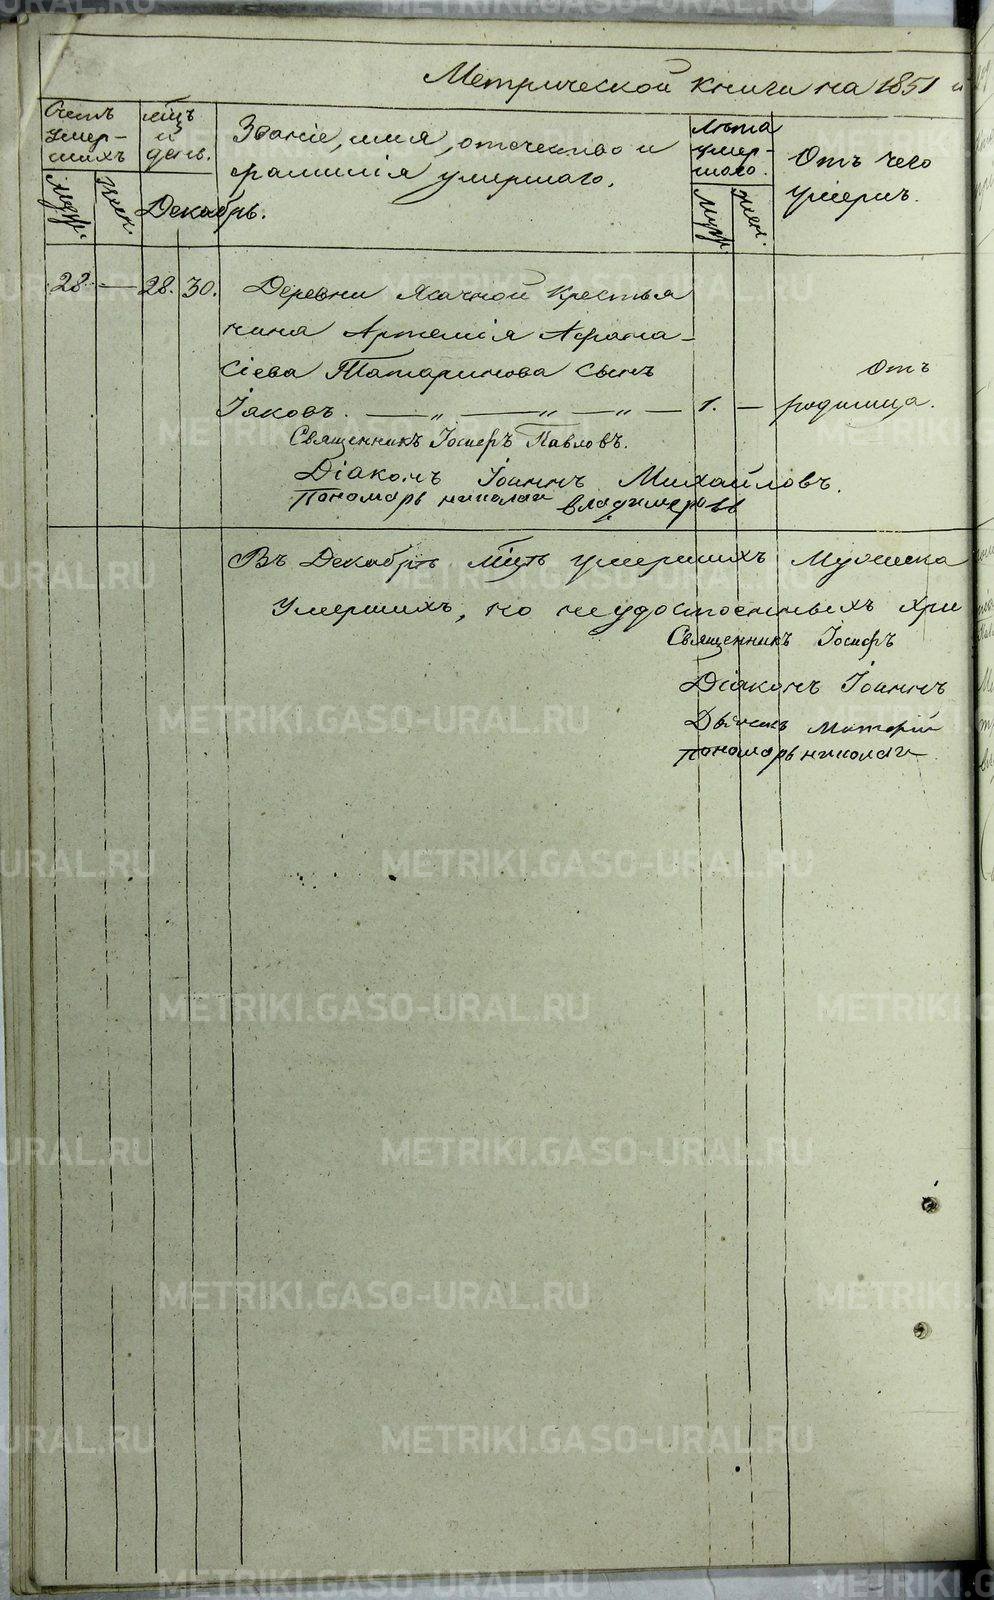 Метрической книги на 1851 й
Счетъ умер-шихъ
Муж.
Жен.
Мцъ и день.
Декабрь.
Званіе, имя, отечество и
фамилія умершаго.
Лѣта умер-шаго.
Муж.
Жен.
Отъ чего
умеръ.
28. — 28. 30. Деревни Ясачной крестья
нина Артемія Афана-
сіева Татаринова сынъ
Іаковъ. — „ — „ — „ — 1. —
Отъ
родимца.
Священникъ Іосифъ Павловъ.
Діаконъ Іоаннъ Михайловъ.
Пономарь Николай Владимеровъ
Въ Декабрѣ Мцѣ умершихъ Мужеска
Умершихъ, но неудостоенныхъ хри
Священникъ Іосифъ
Діаконъ Іоаннъ
Дьячекъ
пономарь николай
METRIKI.GASO-URAL.RU